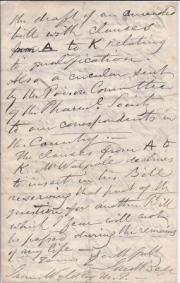 the draft of an amended
bill with clauses
from A to K relating
to qualification.
Also a circular sent
by the Poison Committee
of the Pharm. Society
to our correspondents in
the Country —
The clauses from A to
K Mr Walpole desires
to insert in his Bill
reserving that part of the
question for another Bill
which I fear will not
be passed during the remains
of my life —